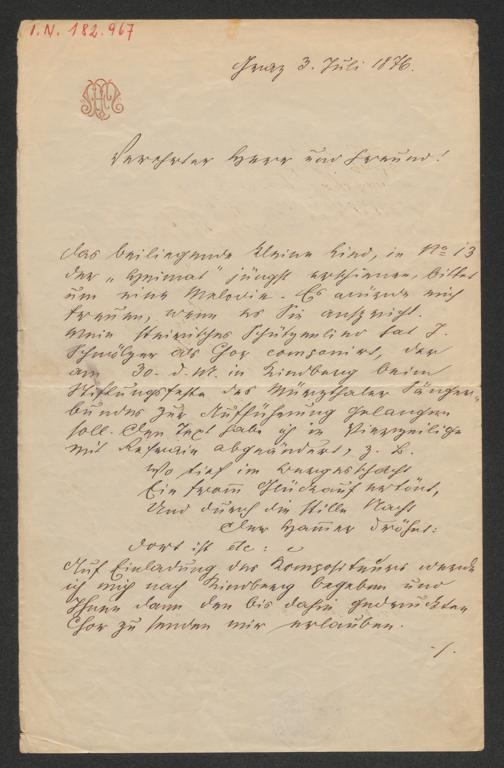 I.N. 182.967
Graz 3. Juli 1876.
Verehrter Herr und Freund!
das beiliegende kleine Lied, in No 13
der „Heimat" jüngst erschienen, bittet
um eine Melodie. Es würde mich
freuen, wenn es Sie anspricht.
Mein steirisches Schützenlied hat J.
Schmölzer als Chor componirt, der
am 30. d. Mt. in Kindberg beim
Stiftungsfeste des Mürzthaler Sänger-
bundes zur Aufführung gelangen
soll. Den Text habe ich in Vierzeilige
mit Refrain abgeändert, z. B.
Wo tief im Bergesschacht
Ein from̄ Glückauf ertönt,
Und durch die stille Nacht
Der Ham̄er dröhnt:
dort ist etc:
Auf Einladung des Kompositeurs werde
ich mich nach Kindberg begeben und
Ihnen dann den bis dahin gedruckten
Chor zu senden mir erlauben.
./.